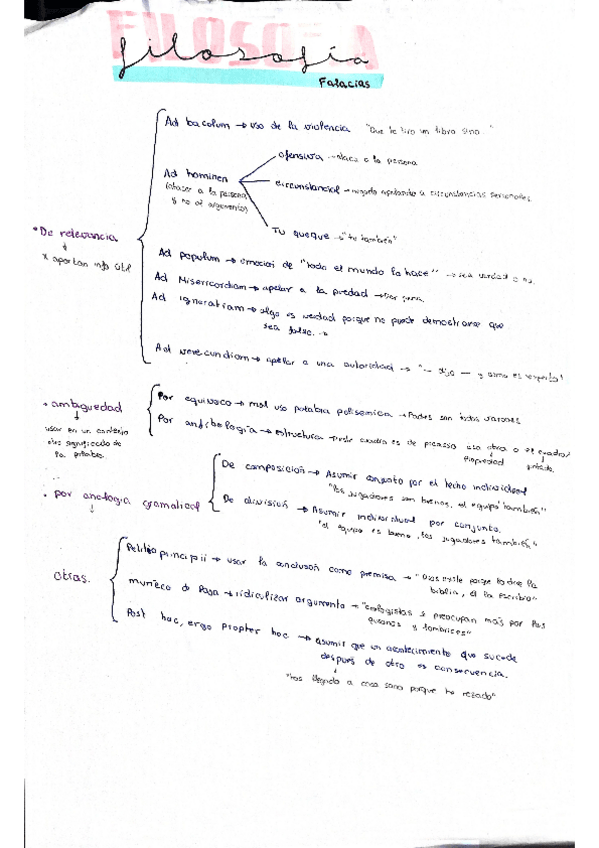 FILOSOFIA
filosofía
Falacias
Ad baculum → uso de la violencia "Que te tiro un libro sino..."
Ad hominen
(atacar a la persona
y no al argumento)
ofensiva → ataco a la persona
circunstancial → negarlo apelando a circunstancias personales.
Tu queque → "tu también"
• De relevancia
↓
x aportan info útil
Ad populum → emoción de "todo el mundo lo hace" → sea verdad o no.
Ad Misericordiam → apelar a la piedad → dar pena.
Ad ignoratiam → algo es verdad porque no puede demostrarse que
sea falso.
Ad verecundiam → apelar a una autoridad → "— dijo — y como es experto"
• ambiguedad
↓
usar en un contexto
otro significado de
la palabra.
Por equivoco → mal uso palabra polisemica → Padres son todos varones
Por anfibología → estructura → este cuadro es de picasso
propiedad pintado.
• por analogía gramatical
↓
De composición → Asumir conjunto por el hecho individual
"los jugadores son buenos, el equipo también"
De división → Asumir individual por conjunto.
"el equipo es bueno, los jugadores también"
Otras.
Petitio principii → usar la conclusión como premisa → "Dios existe porque lo dice la
biblia, él la escribió"
muñeco de Paja → ridiculizar argumento → "ecologistas se preocupan más por los
gusanos y lombrices"
Post hoc, ergo propter hoc → asumir que un acontecimiento que sucede
después de otro es consecuencia.
↓
"has llegado a casa sano porque he rezado"